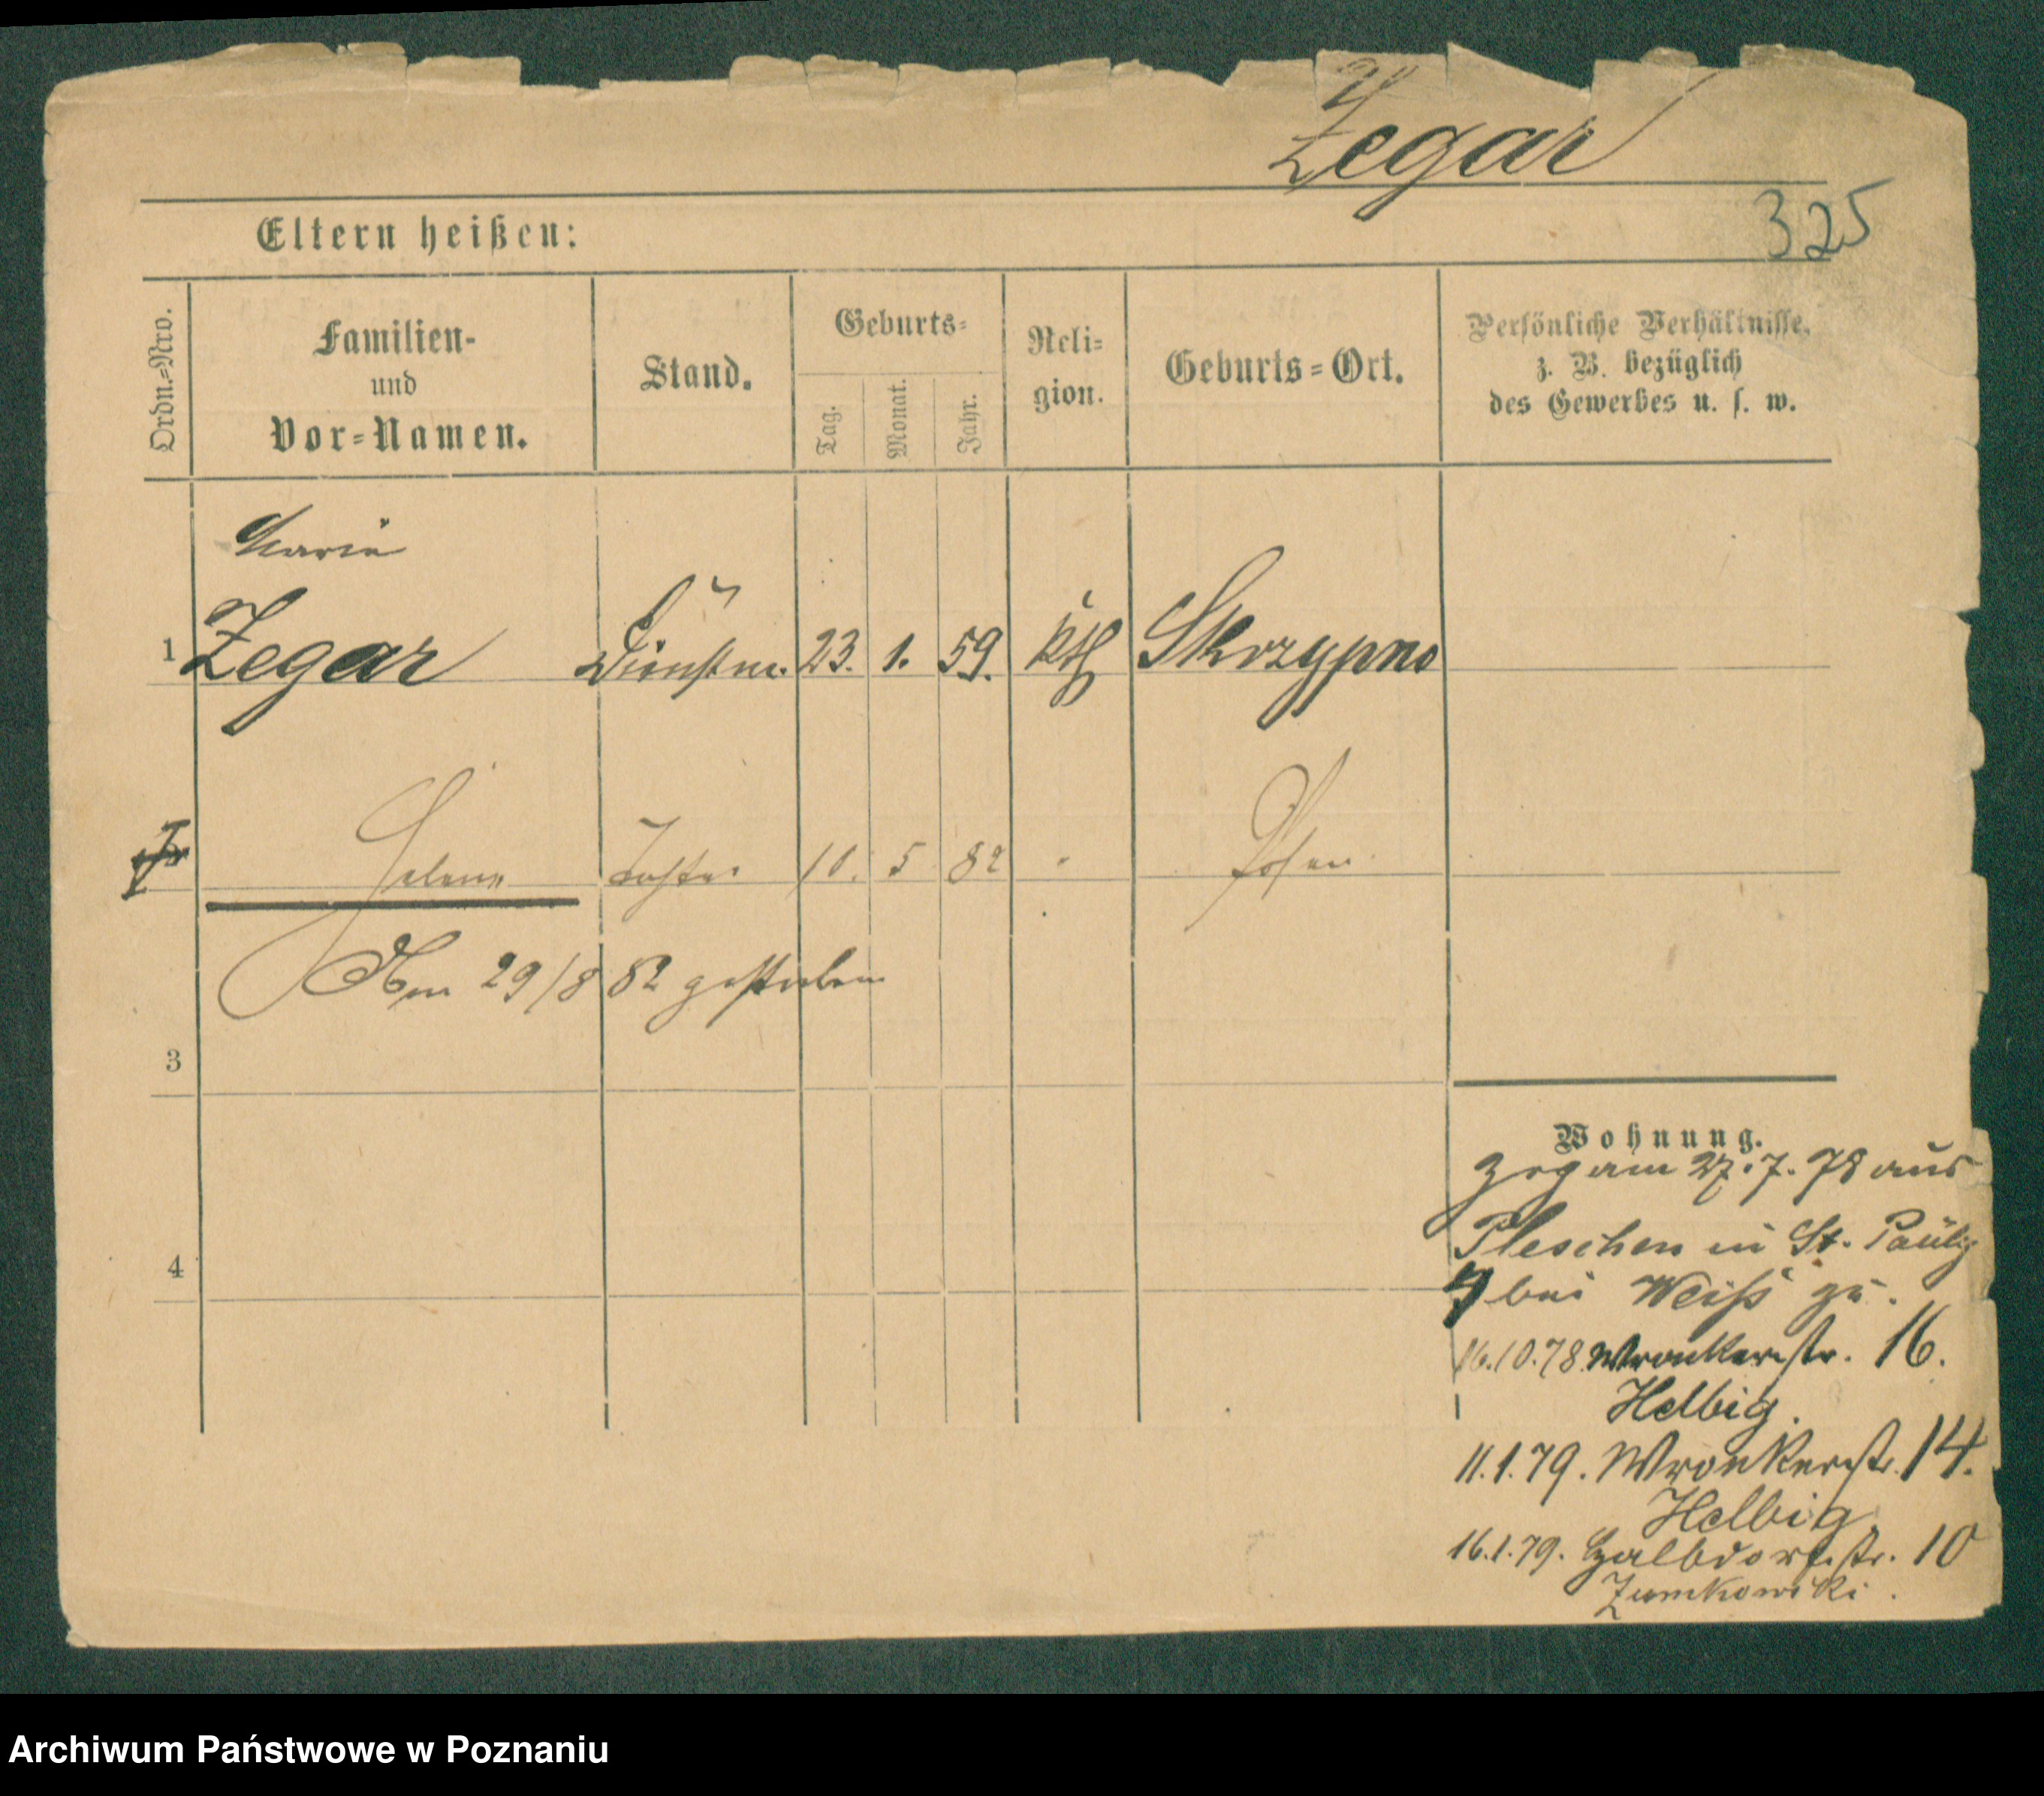 Zegar
325
Eltern heißen:
Ordn.=Nro.
Familien- und Vor=Namen.
Stand.
Geburts=
Tag.
Monat.
Jahr.
Reli=
gion.
Geburts=Ort.
Persönliche Verhältnisse,
z. B. bezüglich
des Gewerbes u. s. w.
Marie
1 Zegar Dienstm. 23. 1. 59. kth Skrzypno
Helene Tochter 10. 5 82 " Posen
Am 29/8 82 gestorben
3
4
Wohnung.
Zog am 27.7.78 aus
Pleschen in St. Paulig
bei Weiß zu.
16.10.78 Wronkerstr. 16.
Helbig.
11.1.79. Wronkerstr. 14.
Helbig
16.1.79. Halbdorfstr. 10
Zumkowski.
Archiwum Państwowe w Poznaniu